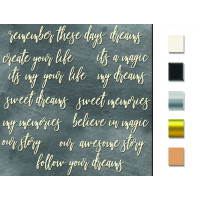 remember these days dreams
create your life its a magic
its my your life my dreams
sweet dreams sweet memories
my memories believe in magic
our story our awesome story
follow your dreams